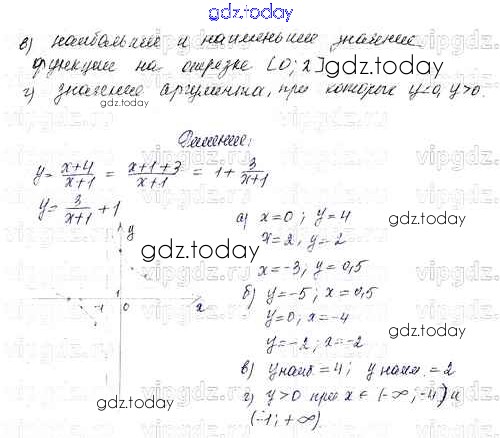 gdz.today
в) наибольшее и наименьшее значение
функции на отрезке [0; 2] gdz.today
г) значение аргумента, при которых y<0, y>0.
gdz.today
Решение:
y = x+4/x+1 = x+1+3/x+1 = 1 + 3/x+1
y = 3/x+1 + 1
а) x=0; y=4
x=2, y=2
x=-3; y=0,5
б) y=-5; x=0,5
y=0; x=-4
y=-2; x=-2
в) yнаиб = 4; yнаим. = 2
г) y>0 при x ∈ (-∞; -4) и
(-1; +∞).
y
gdz.today
1
-1 0 x
gdz.today
gdz.today
vipgdz.ru